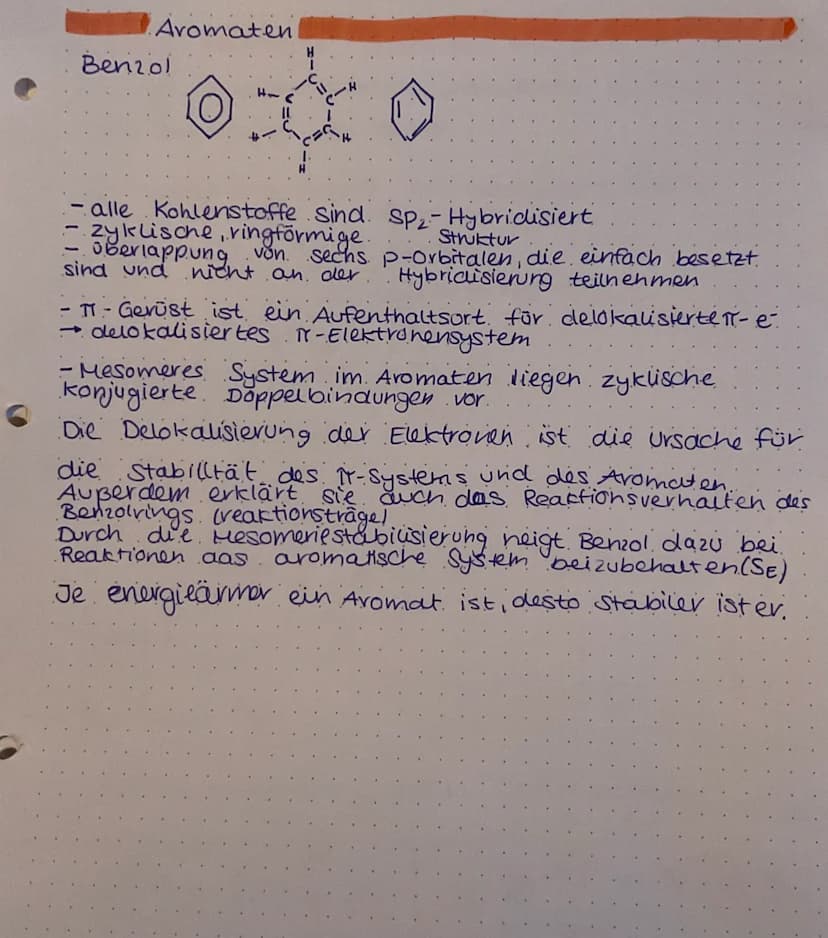 Aromaten
Benzol
H
C
H C C H
H C C H
C
H
- alle Kohlenstoffe sind sp2-Hybridisiert
- zyklische, ringförmige Struktur
- Überlappung von sechs p-Orbitalen, die einfach besetzt
sind und nicht an der Hybridisierung teilnehmen
- π-Gerüst ist ein Aufenthaltsort für delokalisierte π-e⁻
→ delokalisiertes π-Elektronensystem
- Mesomeres System im Aromaten liegen zyklische
konjugierte Doppelbindungen vor
Die Delokalisierung der Elektronen ist die Ursache für
die Stabilität des π-Systems und des Aromaten.
Außerdem erklärt sie auch das Reaktionsverhalten des
Benzolrings (reaktionsträge)
Durch die Mesomeriestabilisierung neigt Benzol dazu bei
Reaktionen das aromatische System beizubehalten (SE)
Je energieärmer ein Aromat ist, desto stabiler ist er.